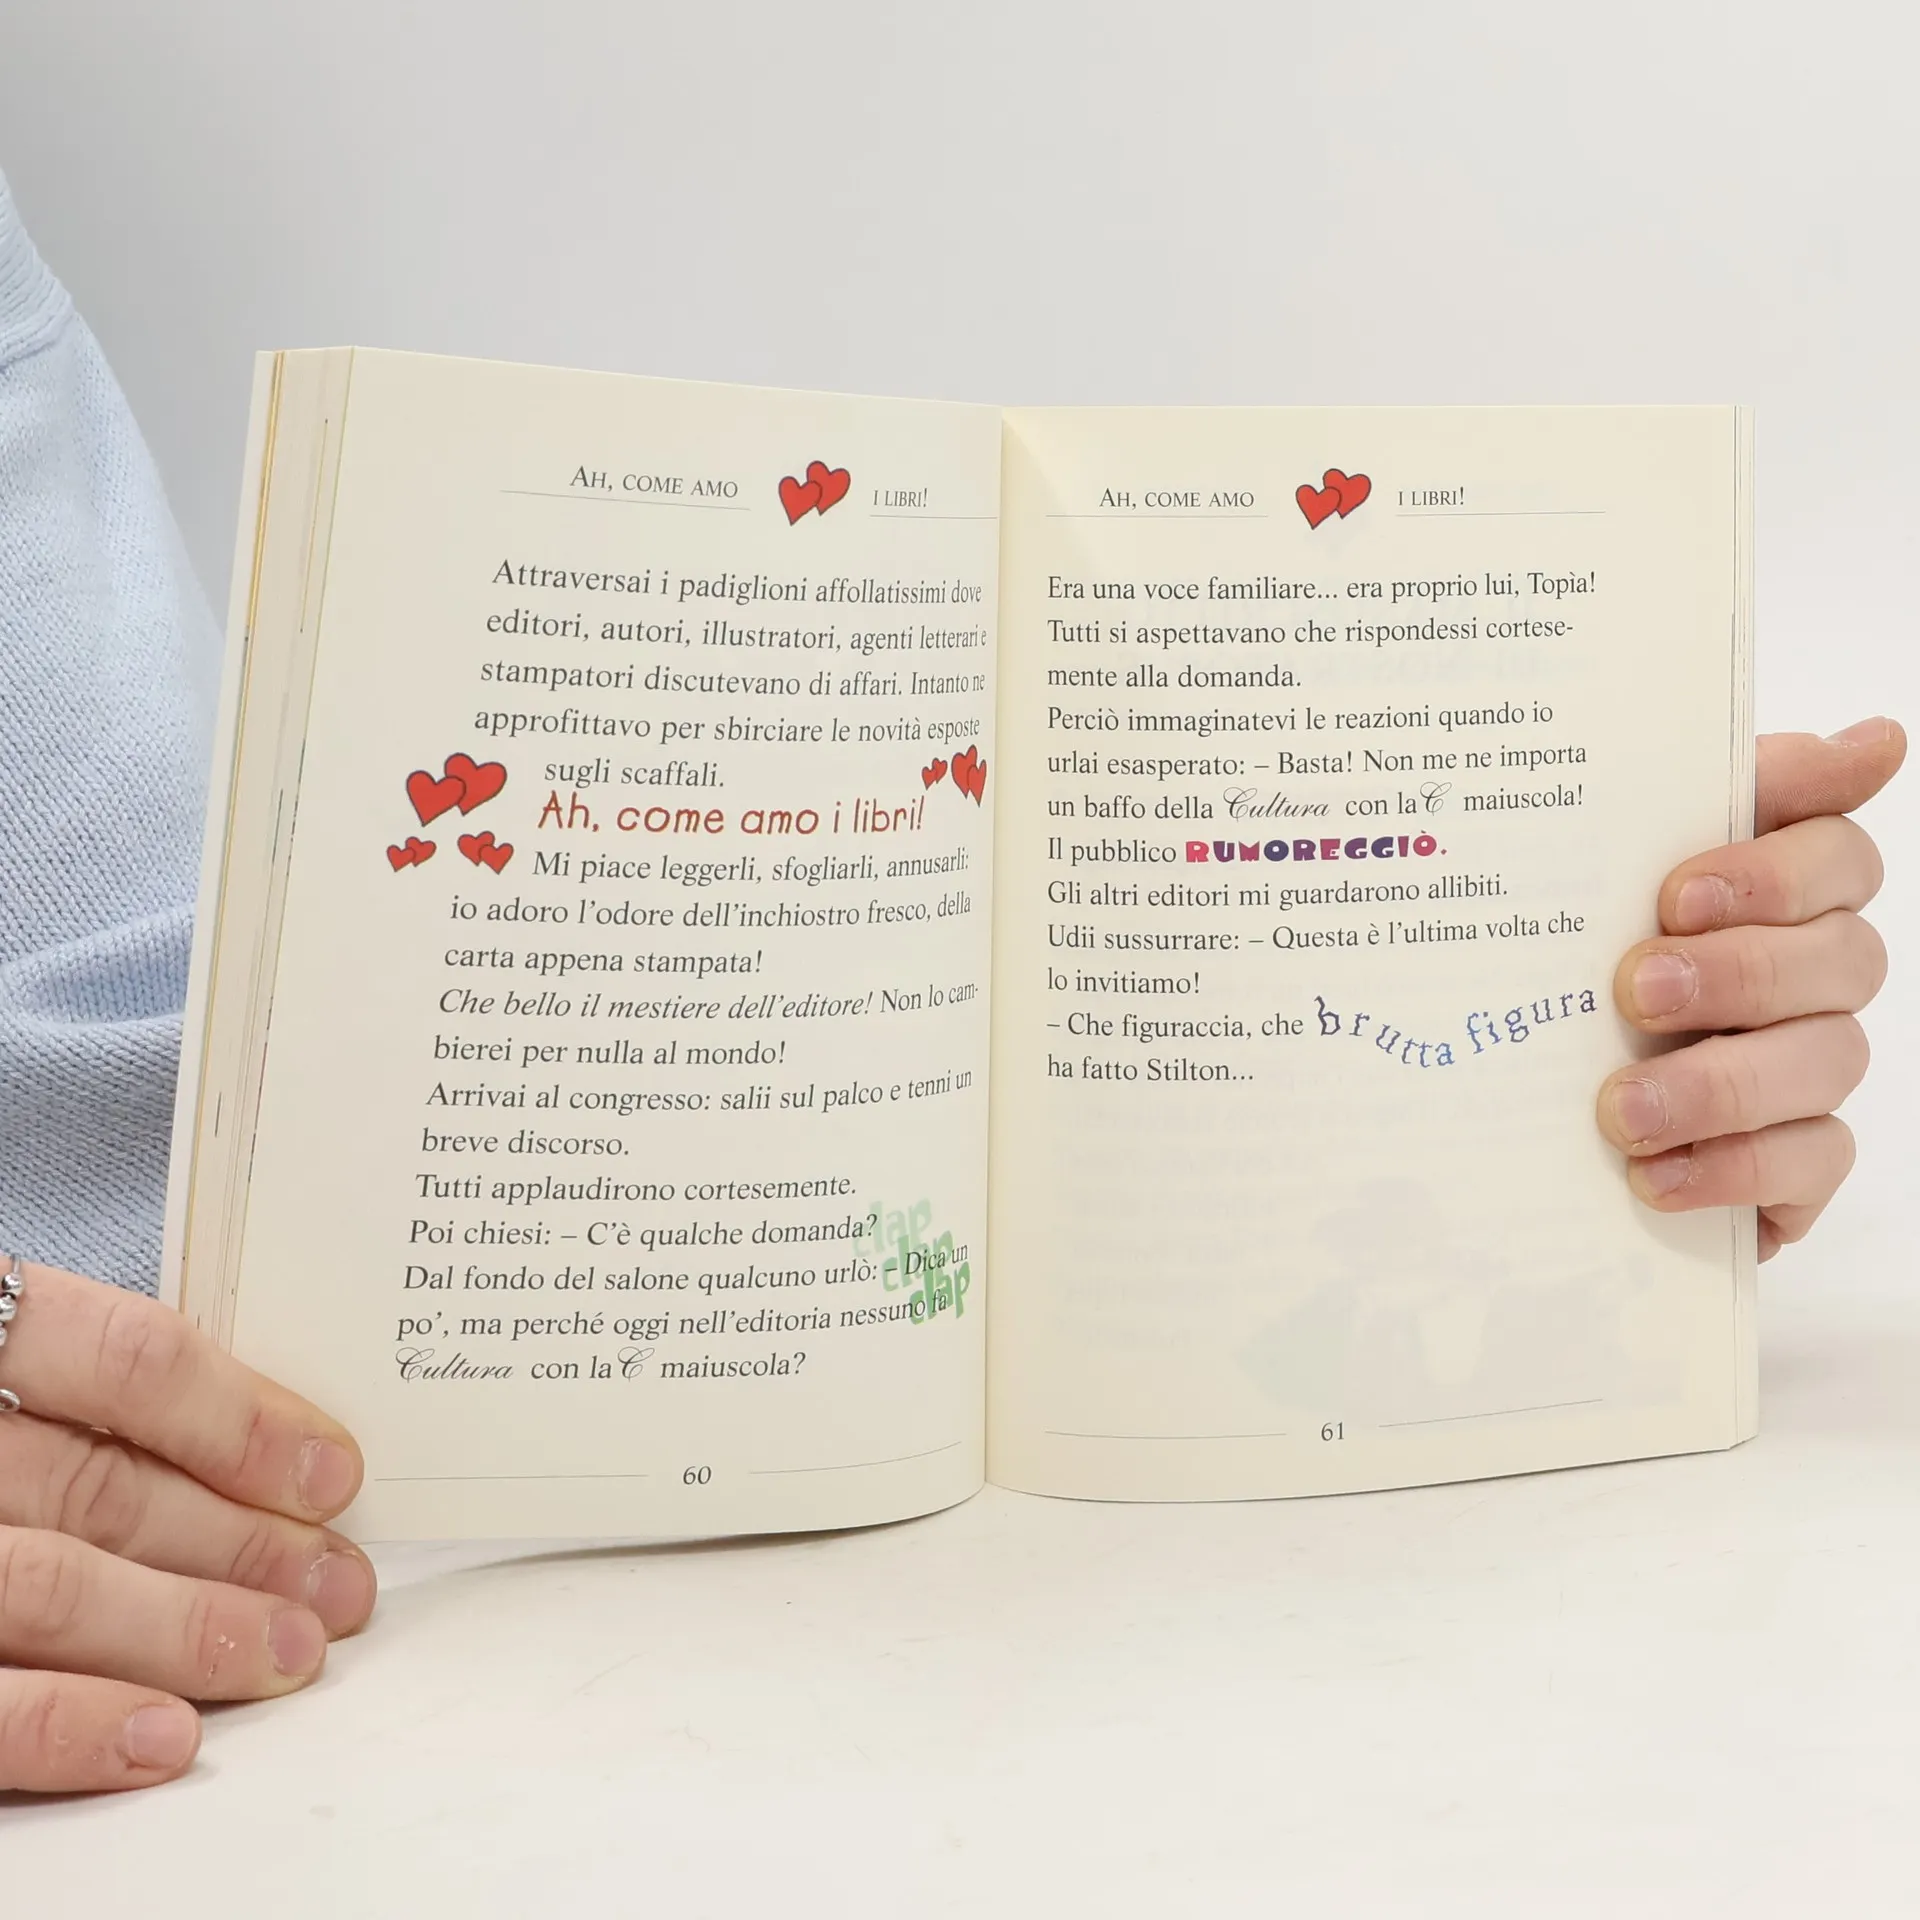 AH, COME AMO I LIBRI!
Attraversai i padiglioni affollatissimi dove
editori, autori, illustratori, agenti letterari e
stampatori discutevano di affari. Intanto ne
approfittavo per sbirciare le novità esposte
sugli scaffali.
Ah, come amo i libri!
Mi piace leggerli, sfogliarli, annusarli:
io adoro l'odore dell'inchiostro fresco, della
carta appena stampata!
Che bello il mestiere dell'editore! Non lo cam-
bierei per nulla al mondo!
Arrivai al congresso: salii sul palco e tenni un
breve discorso.
Tutti applaudirono cortesemente.
clap
Poi chiesi: – C'è qualche domanda?
clap
Dal fondo del salone qualcuno urlò: – Dica un
clap
po', ma perché oggi nell'editoria nessuno fa
Cultura con la C maiuscola?
60
AH, COME AMO I LIBRI!
Era una voce familiare... era proprio lui, Topìa!
Tutti si aspettavano che rispondessi cortese-
mente alla domanda.
Perciò immaginatevi le reazioni quando io
urlai esasperato: – Basta! Non me ne importa
un baffo della Cultura con la C maiuscola!
Il pubblico RUMOREGGIÒ.
Gli altri editori mi guardarono allibiti.
Udii sussurrare: – Questa è l'ultima volta che
lo invitiamo!
– Che figuraccia, che brutta figura
ha fatto Stilton...
61